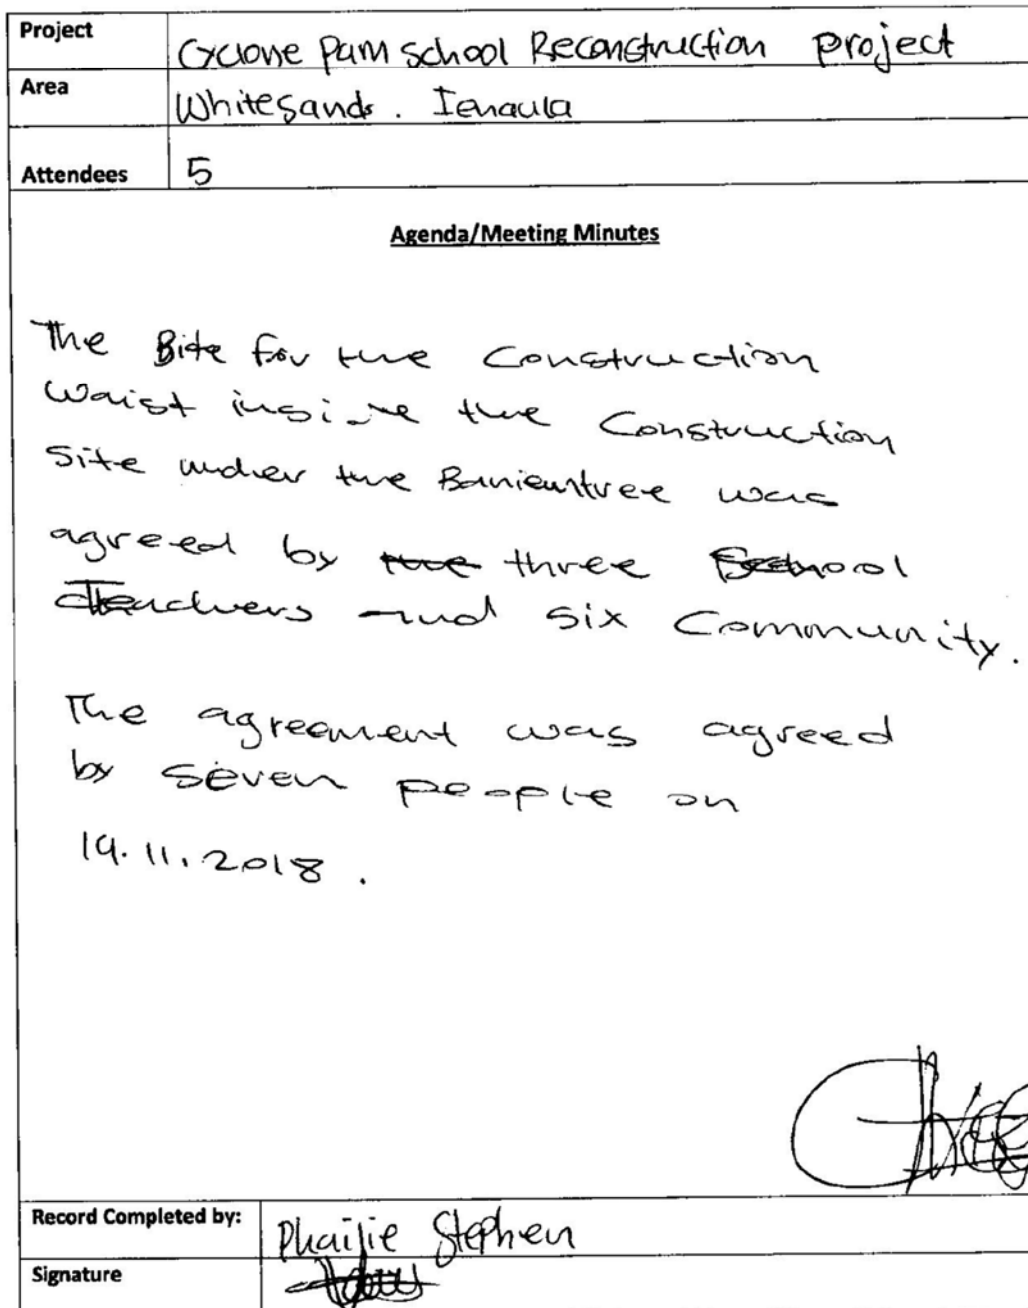 Project Cyclone Pam School Reconstruction project
Area Whitesands. Ienaula
Attendees 5
Agenda/Meeting Minutes
The Site for the Construction
Waist inside the Construction
Site under the Banientree was
agreed by the three School
Teachers and six Community.
The agreement was agreed
by seven people on
19.11.2018.
Record Completed by: Phaijie Stephen
Signature